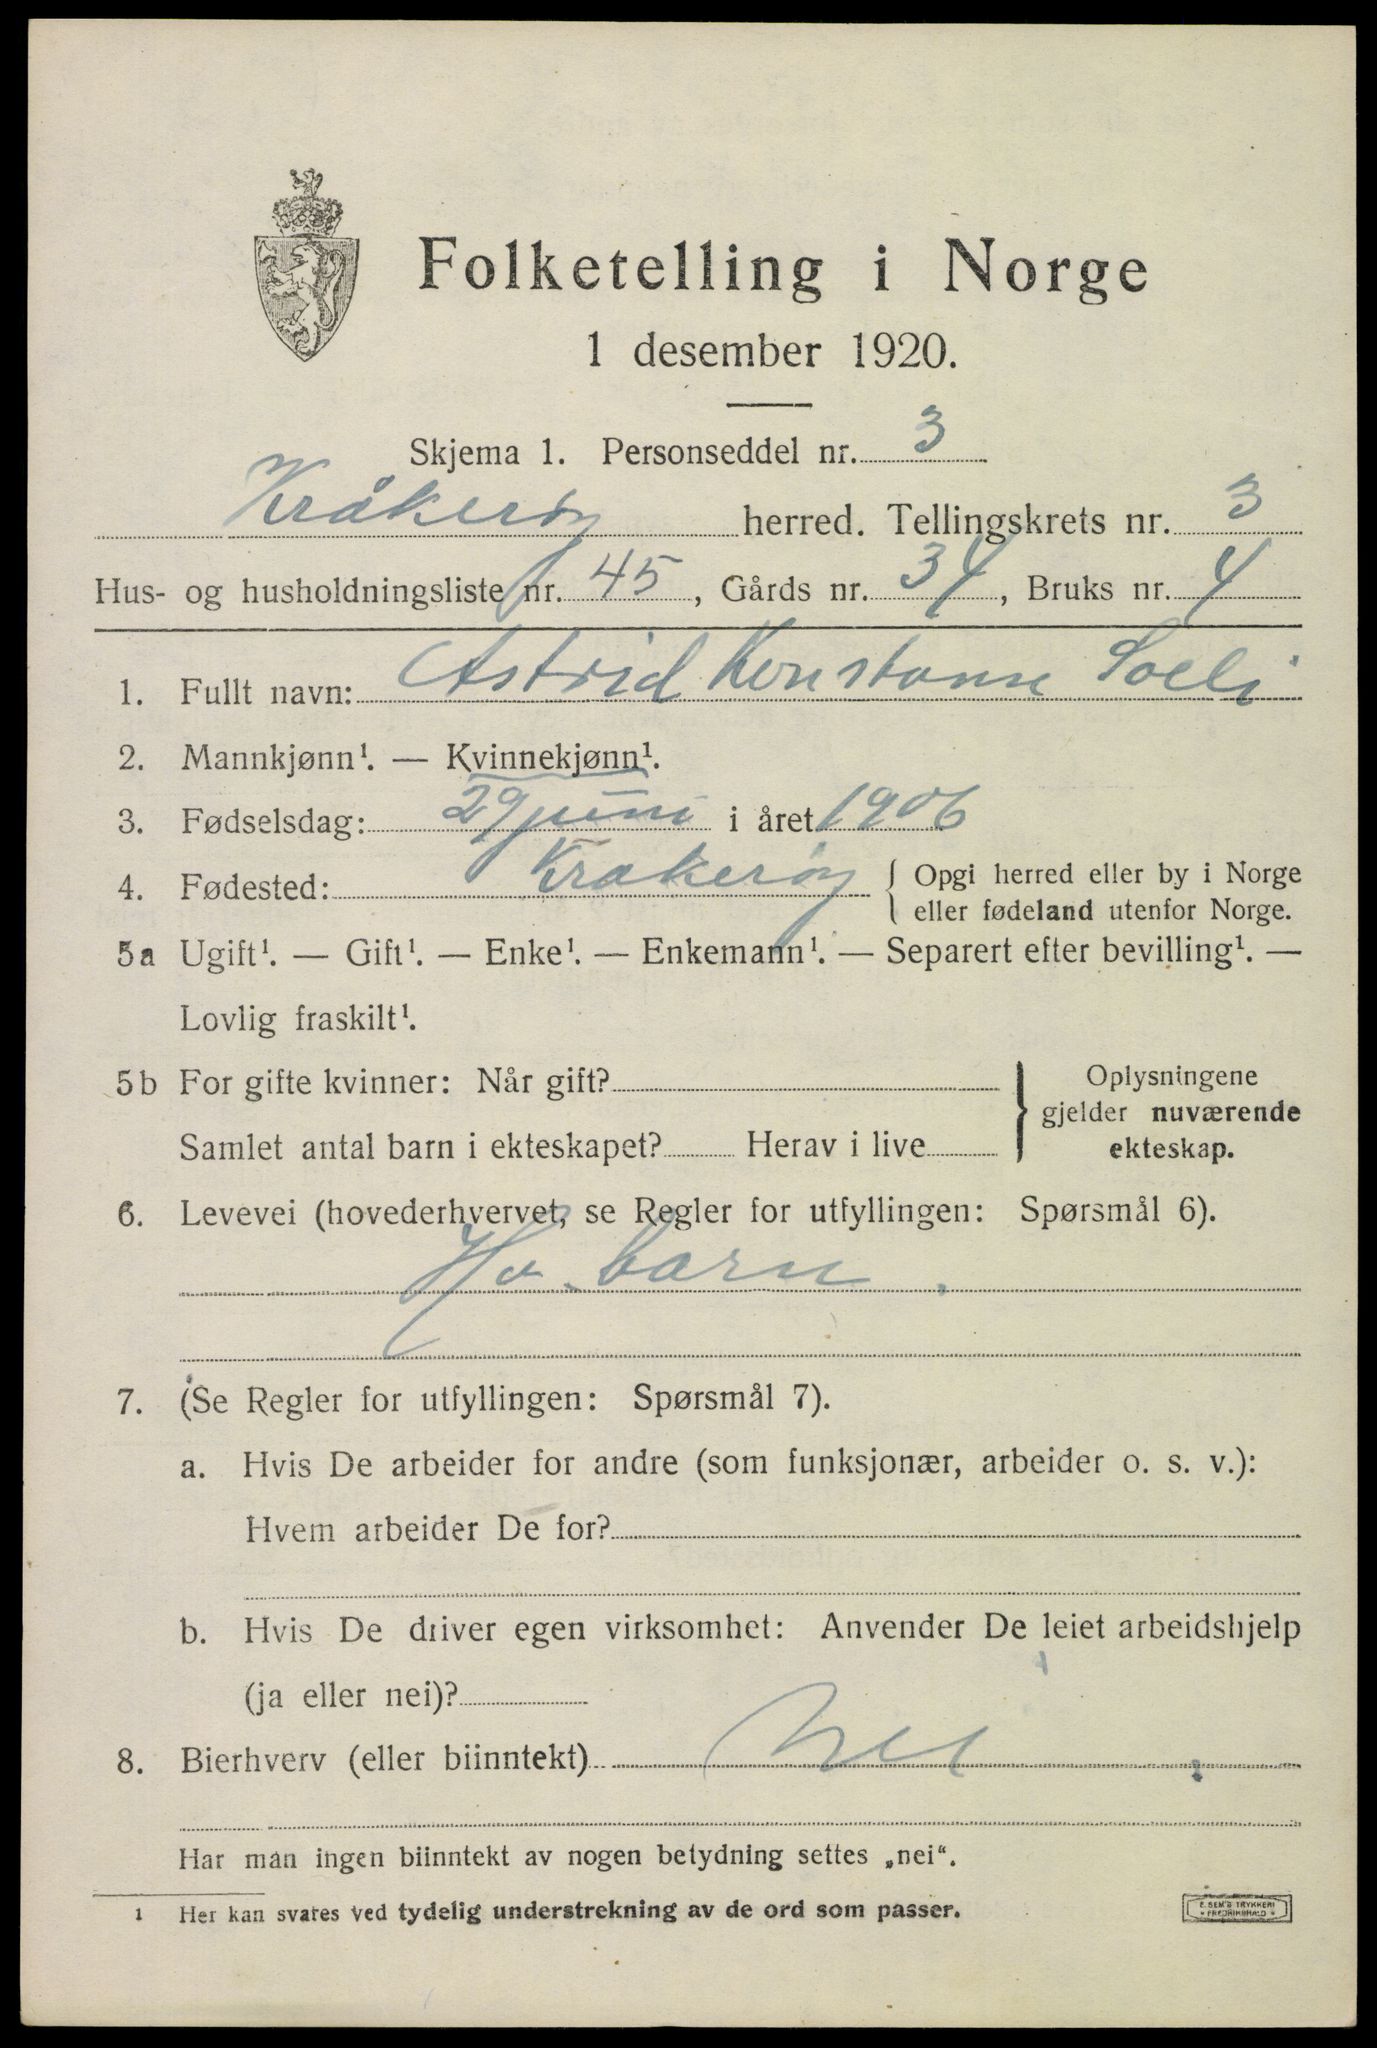 Folketelling i Norge
1 desember 1920.
Skjema 1. Personseddel nr. 3
Kråkerøy herred. Tellingskrets nr. 3
Hus- og husholdningsliste nr. 45, Gårds nr. 34, Bruks nr. 4
1. Fullt navn: Astrid Konstanse Soeli
2. Mannkjønn¹. — Kvinnekjønn¹.
3. Fødselsdag: 29 juni i året 1906
4. Fødested: Krakerøy { Opgi herred eller by i Norge
eller fødeland utenfor Norge.
5a Ugift¹. — Gift¹. — Enke¹. — Enkemann¹. — Separert efter bevilling¹. —
Lovlig fraskilt¹.
5b For gifte kvinner: Når gift? } Oplysningene
gjelder nuværende
Samlet antal barn i ekteskapet? Herav i live ekteskap.
6. Levevei (hovederhvervet, se Regler for utfyllingen: Spørsmål 6).
barn.
7. (Se Regler for utfyllingen: Spørsmål 7).
a. Hvis De arbeider for andre (som funksjonær, arbeider o. s. v.):
Hvem arbeider De for?
b. Hvis De driver egen virksomhet: Anvender De leiet arbeidshjelp
(ja eller nei)?
8. Bierhverv (eller biinntekt) Nei.
Har man ingen biinntekt av nogen betydning settes „nei".
1 Her kan svares ved tydelig understrekning av de ord som passer.
E. SEM'S TRYKKERI
* FREDRIKSHALD *